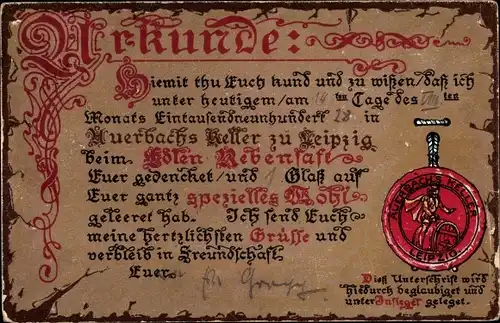 Urkunde:
Hiemit thu Euch kund und zu wißen/daß ich
unter heutigem/am 14 ten Tage des VIII ten
Monats Eintausendneunhundert 28 in
Auerbachs Keller zu Leipzig
beim Edlen Rebensaft
Euer gedencket/und 1 Glaß auf
Euer gantz spezielles Wohl
geleeret hab. Ich send Euch
meine hertzlichsten Grüsse und
verbleib in Freundschaft
Euer
AUERBACHS KELLER
LEIPZIG
Dieß Unterschrift wird
hiedurch beglaubiget und
unter Insiegel geleget.